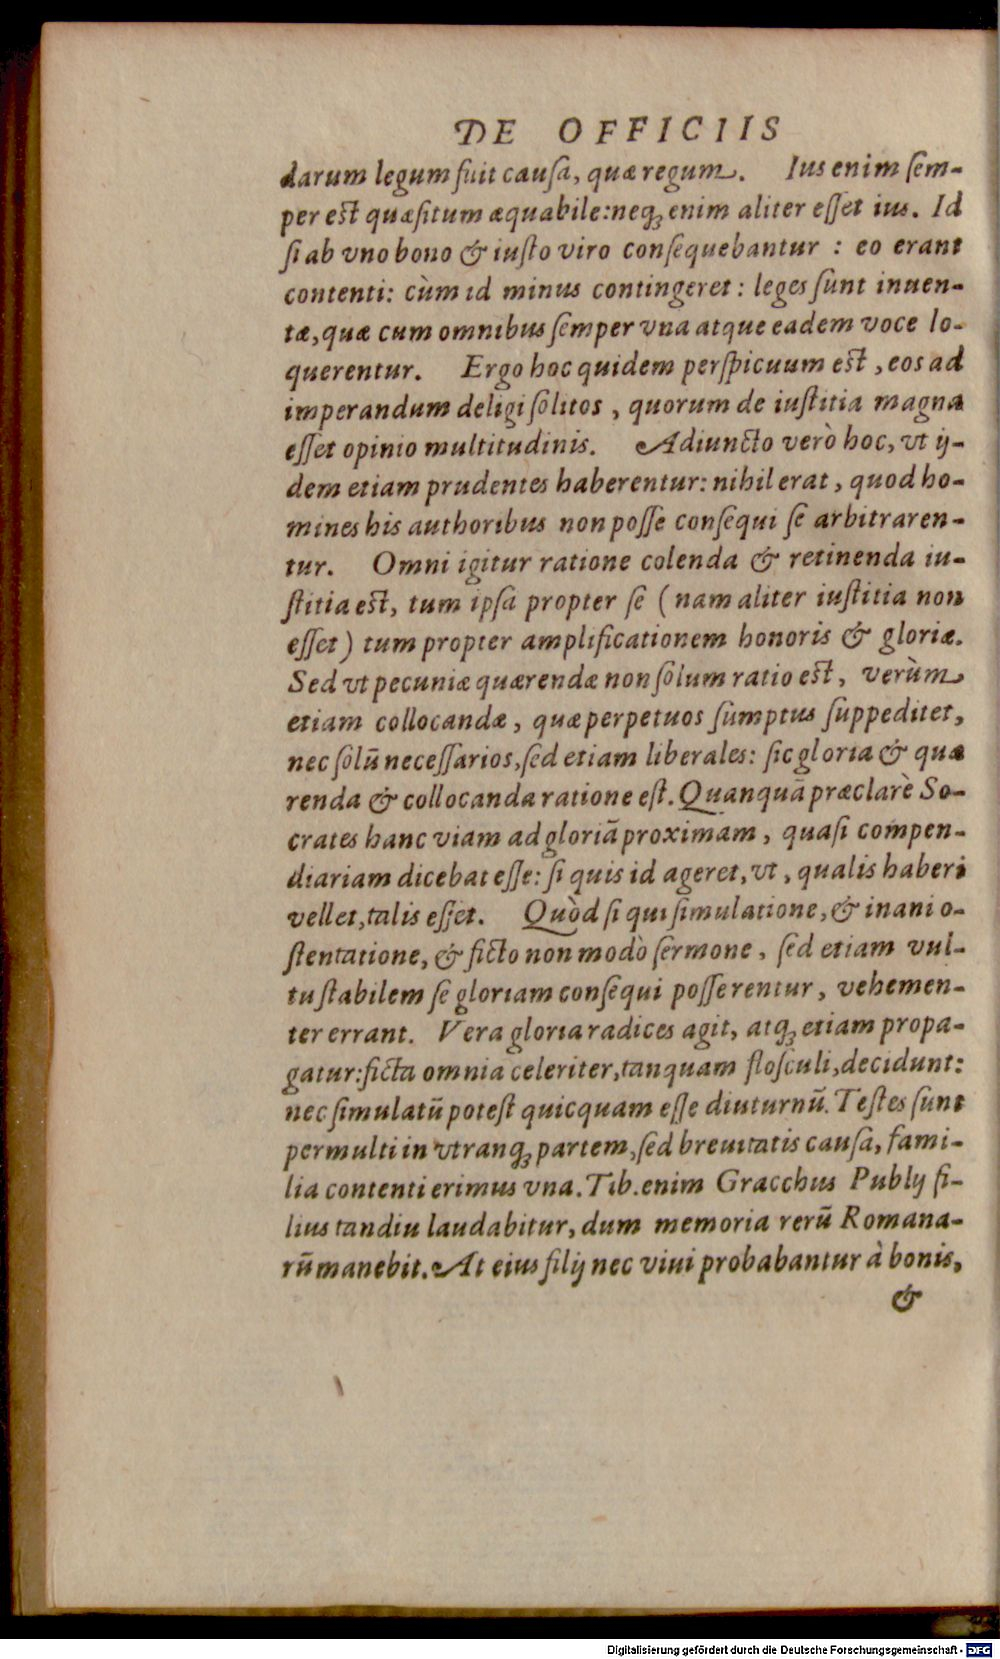 DE OFFICIIS
darum legum fuit causa, quæ regum. Ius enim sem-
per est quæsitum æquabile: neq; enim aliter esset ius. Id
si ab vno bono & iusto viro consequebantur : eo erant
contenti: cùm id minus contingeret : leges sunt inuen-
tæ, quæ cum omnibus semper vna atque eadem voce lo-
querentur. Ergo hoc quidem perspicuum est, eos ad
imperandum deligi solitos, quorum de iustitia magna
esset opinio multitudinis. Adiuncto verò hoc, vt ij-
dem etiam prudentes haberentur: nihil erat, quod ho-
mines his authoribus non posse consequi se arbitraren-
tur. Omni igitur ratione colenda & retinenda iu-
stitia est, tum ipsa propter se (nam aliter iustitia non
esset) tum propter amplificationem honoris & gloriæ.
Sed vt pecuniæ quærendæ non solum ratio est, verùm
etiam collocandæ, quæ perpetuos sumptus suppeditet,
nec solū necessarios, sed etiam liberales: sic gloria & quæ
renda & collocanda ratione est. Quanquā præclarè So-
crates hanc viam ad gloriā proximam, quasi compen-
diariam dicebat esse: si quis id ageret, vt, qualis haberi
vellet, talis esset. Quòd si qui simulatione, & inani o-
stentatione, & ficto non modò sermone, sed etiam vul-
tu stabilem se gloriam consequi posse rentur, vehemen-
ter errant. Vera gloria radices agit, atq; etiam propa-
gatur: ficta omnia celeriter, tanquam flosculi, decidunt:
nec simulatū potest quicquam esse diuturnū. Testes sunt
permulti in vtranq; partem, sed breuitatis causa, fami-
lia contenti erimus vna. Tib. enim Gracchus Publij fi-
lius tandiu laudabitur, dum memoria rerū Romana-
rū manebit. At eius filij nec viui probabantur à bonis,
&
Digitalisierung gefördert durch die Deutsche Forschungsgemeinschaft - DFG